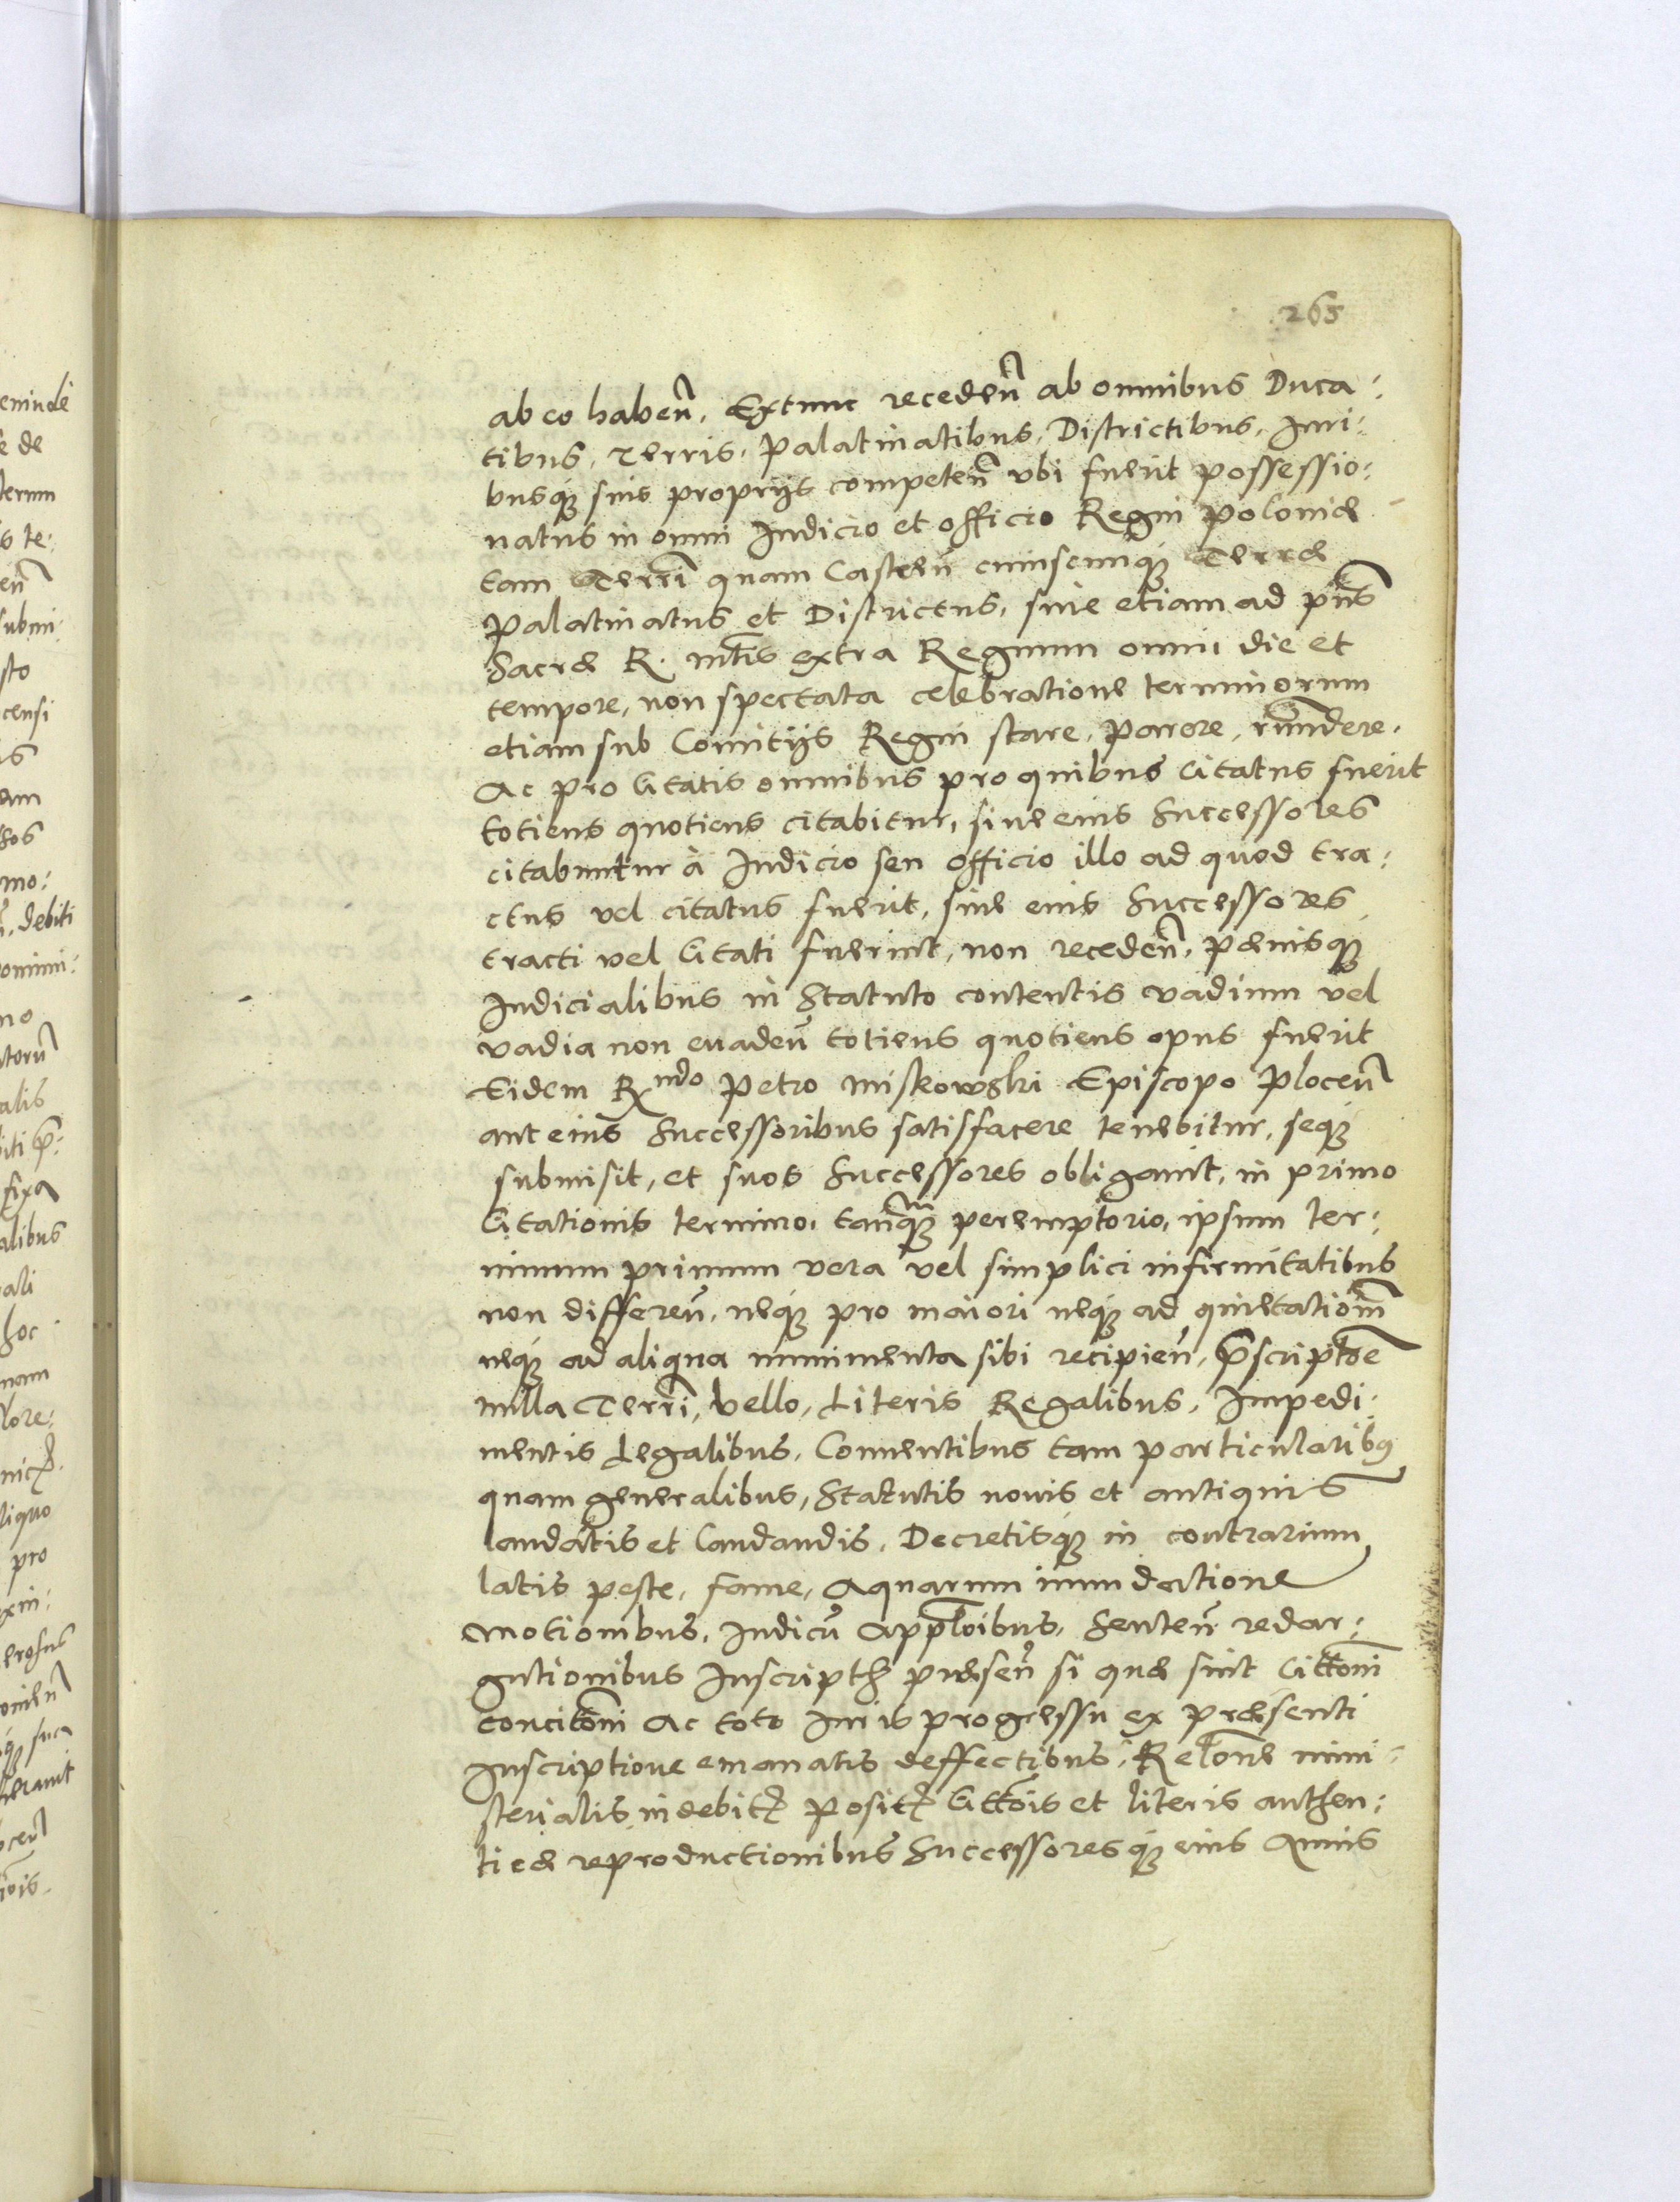 265
ab eo haben̄. Extunc receden̄ ab omnibus Duca:
tibus, Terris, Palatinatibus, Districtibus, Juri:
busq̃ suis proprijs competen̄ vbi fuerit possessio:
natus in omni Judicio et officio Regni Poloniæ
tam Terrī quam Castren̄ cuiuscunq̃ Terræ
Palatinatus et Districtus, siue etiam ad pn̄s
Sacræ R. mtis extra Regnum omni die et
tempore, non spectata celebratione terminorum
etiam sub Comitijs Regni stare, Parere, rn̄dere.
Ac pro Citatis omnibus pro quibus Citatus fuerit
totiens quotiens citabitur, siue eius Successores
citabuntur à Judicio seu officio illo ad quod tra:
ctus vel citatus fuerit, siue eius Successores
tracti vel Citati fuerint, non receden̄, Pænisq̃
Judicialibus in Statuto contentis vadium vel
vadia non euaden̄ totiens quotiens opus fuerit
Eidem Rndo Petro Miskowski Episcopo Plocen̄
aut eius Successoribus satisfacere tenebitur, seq̃
submisit, et suos Successores obligauit, in primo
Citationis termino, tanq̃m peremptorio, ipsum ter:
minum primum vera vel simplici infirmitatibus
non differen̄, neq̃ pro maiori neq̃ ad quietatiom̄
neq̃ ad aliqua munimenta sibi recipien̄, p̄scriptōe
nulla Terrī, bello, Literis Regalibus, Impedi:
mentis Legalibus, Conuentibus tam particularibus
quam generalibus, Statutis nouis et antiquis
laudatis et laudandis, Decretisq̃ in contrarium
latis peste, fame, aquarum inundatione
Motionibus, Judicū App̄lōibus, Senten̄ redar:
gutionibus Inscript̃ præsen̄ si quæ sint Cittōm̄
concitōm̄ Ac toto Juris progressu ex præsenti
Inscriptione emanatis deffectibus, Relōne mini:
sterialis indebit̃ Posit̃ Cittōis et literis authen:
ticæ reproductionibus Successoresq̃ eius Quius